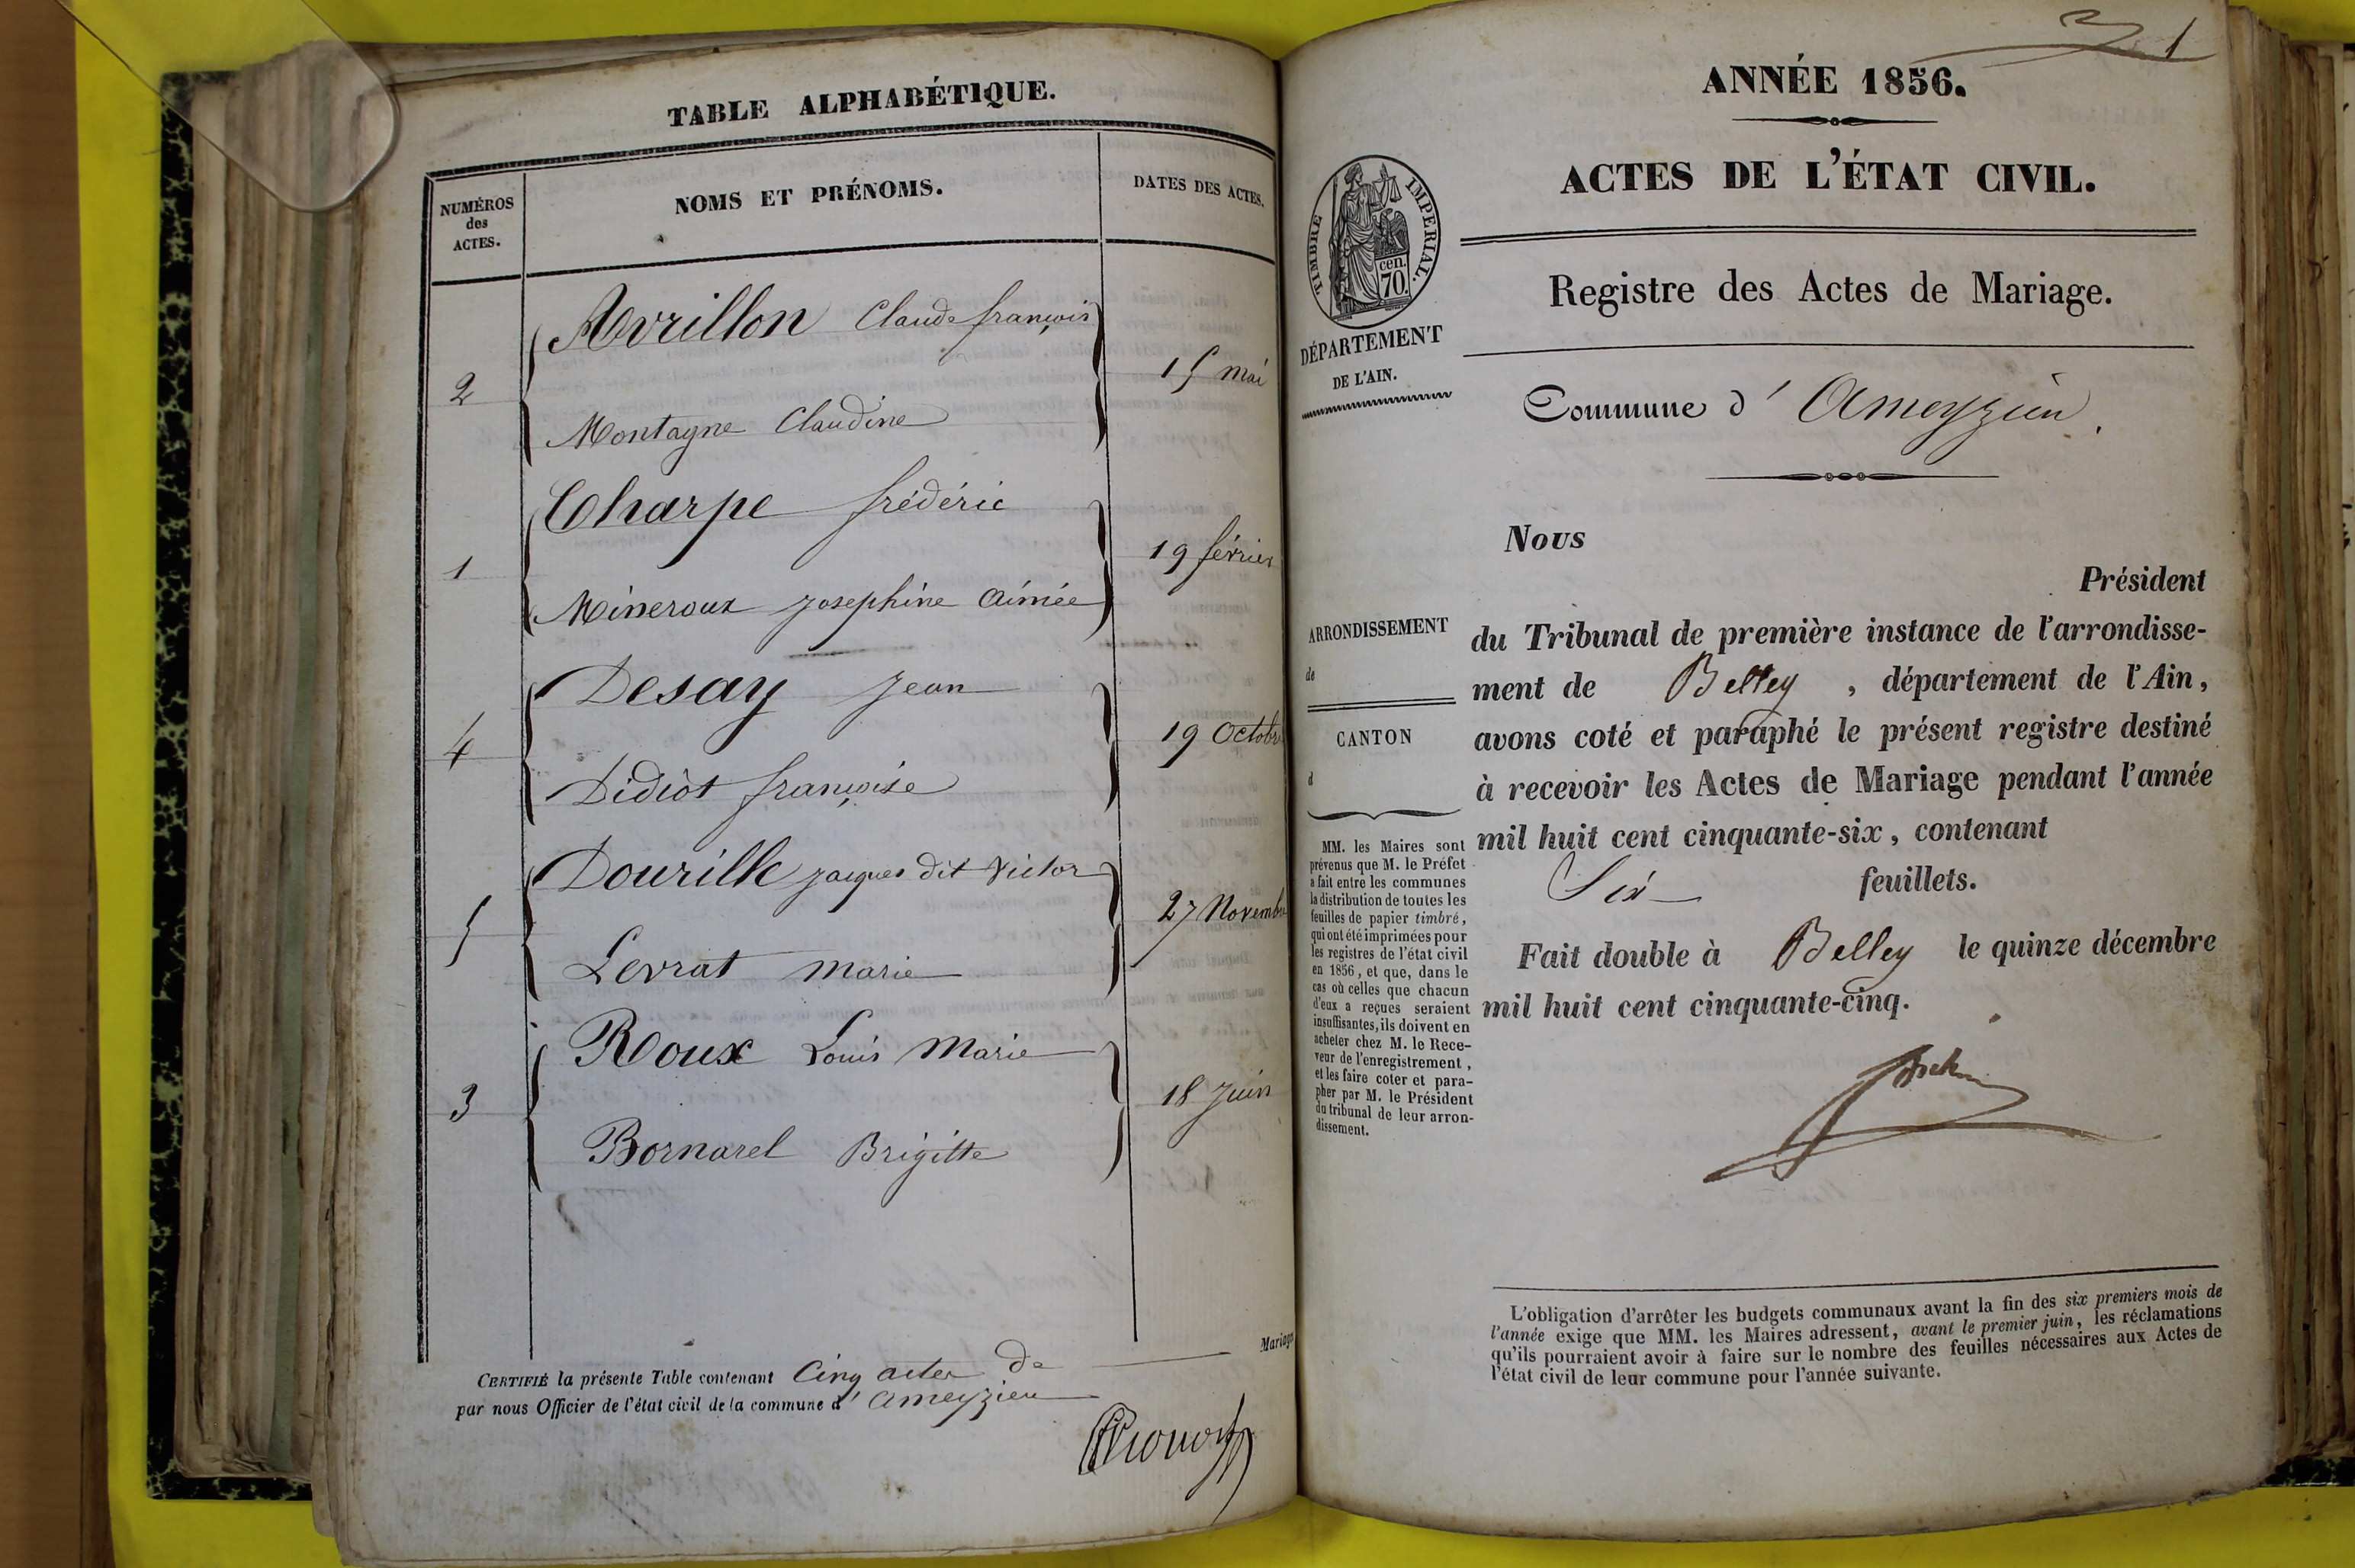 TABLE ALPHABÉTIQUE.
NUMÉROS
des
ACTES.
NOMS ET PRÉNOMS.
DATES DES ACTES.
Avrillon Claude françois
2
15 mai
Montagne Claudine
Charpe frédéric
1
19 février
Mineroux Josephine Aimée
Desay Jean
4
19 Octobre
Didiot françoise
Dourille Jacques dit Victor
5
27 Novembre
Levrat Marie
Roux Louis Marie
3
18 Juin
Bornarel Brigitte
Mariage
CERTIFIÉ la présente Table contenant Cinq actes de
par nous Officier de l'état civil de la commune d' Ameyzieu
1
ANNÉE 1856.
ACTES DE L'ÉTAT CIVIL.
TIMBRE IMPÉRIAL.
cen.
70.
Registre des Actes de Mariage.
DÉPARTEMENT
DE L'AIN.
Commune d' Ameyzieu.
Nous
Président
ARRONDISSEMENT
de
CANTON
d
du Tribunal de première instance de l'arrondisse-
ment de Belley, département de l'Ain,
avons coté et paraphé le présent registre destiné
à recevoir les Actes de Mariage pendant l'année
mil huit cent cinquante-six, contenant
Six feuillets.
Fait double à Belley le quinze décembre
mil huit cent cinquante-cinq.
MM. les Maires sont
prévenus que M. le Préfet
a fait entre les communes
la distribution de toutes les
feuilles de papier timbré,
qui ont été imprimées pour
les registres de l'état civil
en 1856, et que, dans le
cas où celles que chacun
d'eux a reçues seraient
insuffisantes, ils doivent en
acheter chez M. le Rece-
veur de l'enregistrement,
et les faire coter et para-
pher par M. le Président
du tribunal de leur arron-
dissement.
L'obligation d'arrêter les budgets communaux avant la fin des six premiers mois de
l'année exige que MM. les Maires adressent, avant le premier juin, les réclamations
qu'ils pourraient avoir à faire sur le nombre des feuilles nécessaires aux Actes de
l'état civil de leur commune pour l'année suivante.